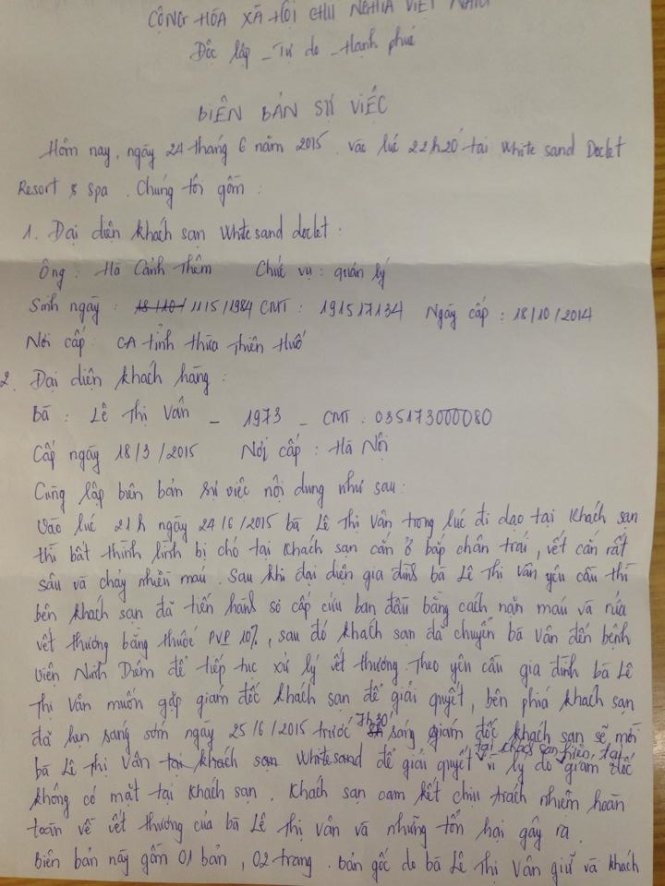 CỘNG HÒA XÃ HỘI CHỦ NGHĨA VIỆT NAM
Độc lập - Tự do - Hạnh phúc
BIÊN BẢN SỰ VIỆC
Hôm nay, ngày 24 tháng 6 năm 2015. vào lúc 22h20' tại White sand Doclet
Resort & spa. Chúng tôi gồm:
1. Đại diện khách sạn Whitesand doclet:
Ông: Hà Cảnh Thêm Chức vụ: quản lý
Sinh ngày: 18/10/ 11/5/1984 CMT: 191517134 Ngày cấp: 18/10/2014
Nơi cấp: CA tỉnh thừa thiên Huế
2. Đại diện khách hàng:
Bà: Lê Thị Vân - 1973 - CMT: 035173000080
Cấp ngày 18/3/2015 Nơi cấp: Hà Nội
Cùng lập biên bản sự việc nội dung như sau:
Vào lúc 21h ngày 24/6/2015 bà Lê Thị Vân trong lúc đi dạo tại khách sạn
thì bất thình lình bị chó tại khách sạn cắn ở bắp chân trái, vết cắn rất
sâu và chảy nhiều máu. Sau khi đại diện gia đình bà Lê Thị Vân yêu cầu thì
bên khách sạn đã tiến hành sơ cấp cứu ban đầu bằng cách nặn máu và rửa
vết thương bằng thuốc PVP 10%, sau đó khách sạn đã chuyển bà Vân đến bệnh
viện Ninh Diêm để tiếp tục xử lý vết thương. Theo yêu cầu gia đình bà Lê
Thị Vân muốn gặp giám đốc khách sạn để giải quyết, bên phía khách sạn
đã hẹn sáng sớm ngày 25/6/2015 trước 7h30' sáng giám đốc khách sạn sẽ mời
bà Lê Thị Vân tại khách sạn Whitesand để giải quyết vì lý do hiện tại giám đốc
không có mặt tại khách sạn. Khách sạn cam kết chịu trách nhiệm hoàn
toàn về vết thương của bà Lê Thị Vân và những tổn hại gây ra.
Biên bản này gồm 01 bản, 02 trang. Bản gốc do bà Lê Thị Vân giữ và khách